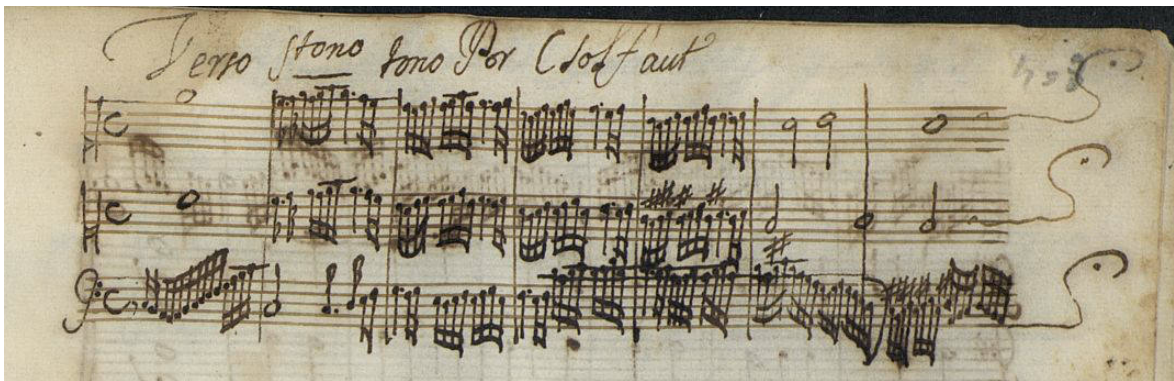 Verso 5 tono tono Por Csolfaut